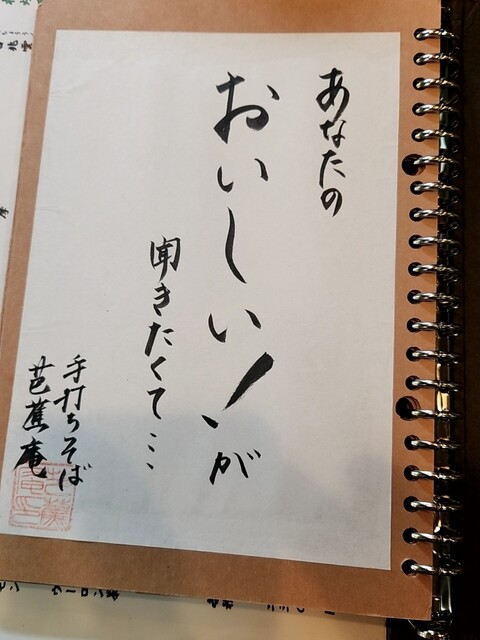 あなたの
おいしい!が
聞きたくて…
手打ちそば
芭蕉庵